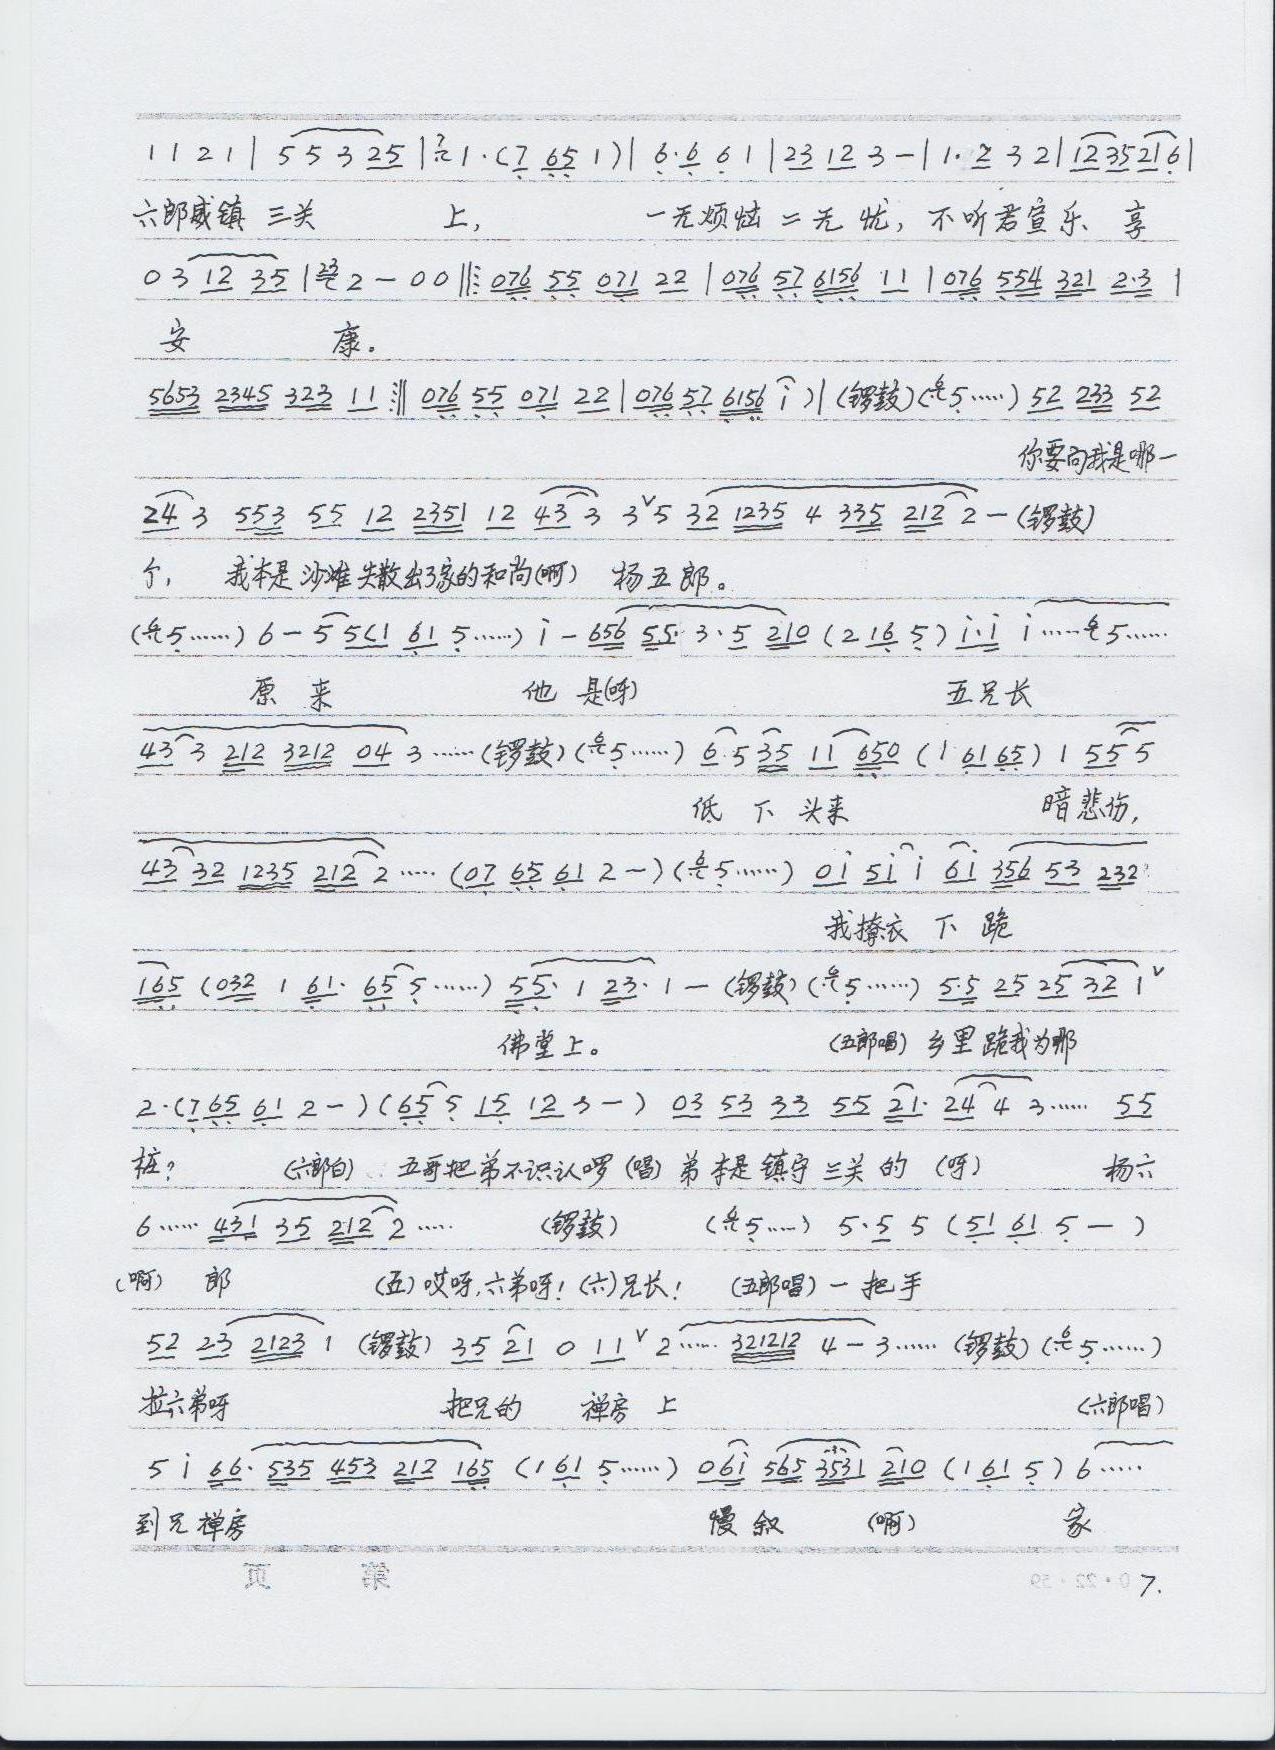 1 1 2 1 | 5 5 3 25 | 1·(7 65 1) | 6·6 6 1 | 23 12 3 – | 1·2 3 2 | 12 35 21 6 |
六郎威镇 三关 上, 一无烦恼 二无忧, 不听君宣乐 享
0 3 12 35 | 23 2 – 0 0 ‖: 076 55 071 22 | 076 57 6156 11 | 076 554 321 2·3 |
安 康。
5653 2345 323 11 :‖ 076 55 071 22 | 076 57 6156 i ) | (锣鼓) (6 5……) 52 233 52
你要问我是哪一
24 3 553 55 12 2351 12 43 3 3 ˅ 5 32 1235 4 335 212 2 – (锣鼓)
个, 我本是沙滩失散出了家的和尚(啊) 杨五郎。
(6 5……) 6 – 5 5 (1 61 5……) i – 656 55· 3·5 210 (2 16 5) i·i i……6 5……
原来 他是(呀) 五兄长
43 3 212 3212 04 3……(锣鼓)(6 5……) 6·5 35 11 650 (1 61 65) 1 55 5
低下头来 暗悲伤,
43 32 1235 212 2…… (07 65 61 2 –) (6 5……) 0i 5i i 6i 356 53 232
我撩衣下跪
165 (032 1 61· 65 5……) 55· 1 23· 1 – (锣鼓) (6 5……) 5·5 25 25 32 1 ˅
佛堂上。 (五郎唱) 乡里跪我为那
2·(7 65 61 2 –) (65 5 15 12 3 –) 03 53 33 55 21· 24 4 3…… 55
桩? (六郎白) 五哥把弟不识认啰 (唱) 弟本是镇守三关的 (呀) 杨六
6…… 431 35 212 2…… (锣鼓) (6 5……) 5·5 5 (51 61 5 – )
(啊) 郎 (五) 哎呀,六弟呀! (六)兄长! (五郎唱) 一把手
52 23 2123 1 (锣鼓) 35 21 0 11 ˅ 2…… 321212 4 – 3…… (锣鼓) (6 5……)
拉六弟呀 把兄的 禅房上 (六郎唱)
5 i 66· 535 453 212 165 (1 61 5……) 06i 565 3531 210 (1 61 5) 6……
到兄禅房 慢叙 (啊) 家
第 页
0·22·59
7.